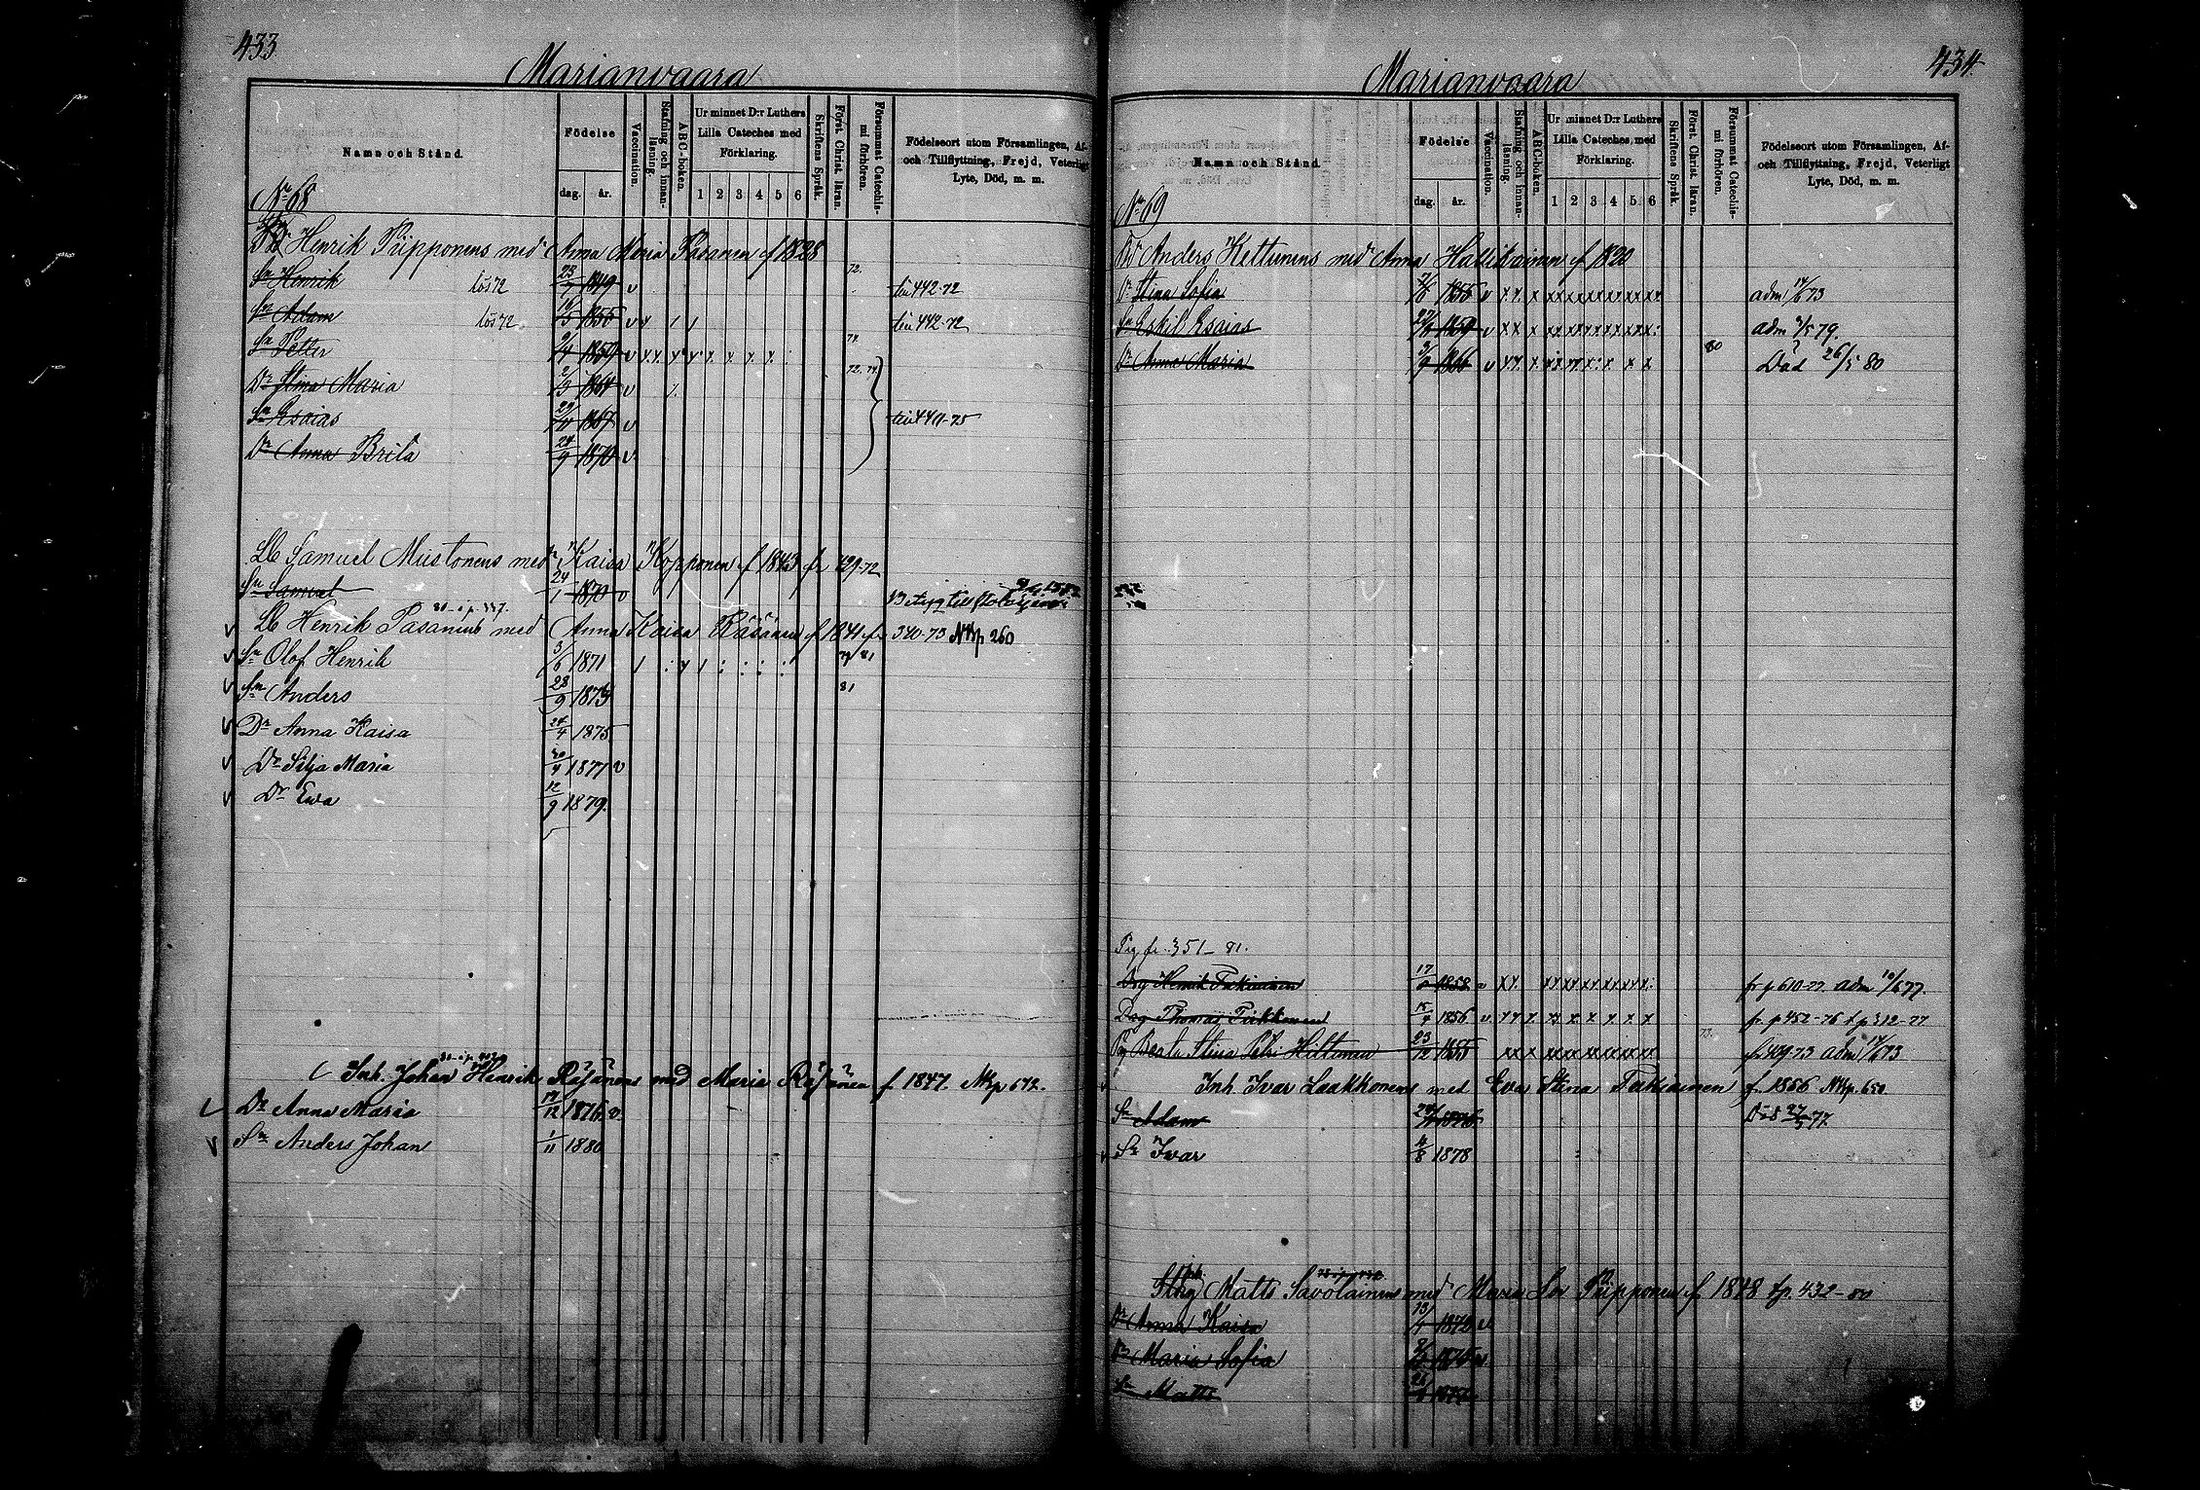 433
Marianvaara
Namn och Stånd.
Födelse
dag. år.
Vaccination.
Stafning och innanläsning.
ABC-boken.
Ur minnet D:r Luthers Lilla Cateches med Förklaring.
1 2 3 4 5 6
Skriftens Språk.
Först. Christ. läran.
Försummat Catechismi förhören.
Födelseort utom Församlingen, Af- och Tillflyttning, Frejd, Veterligt Lyte, Död, m. m.
No 68
Henrik Piipponens med Anna Maria Pasanen f 1828
Sn Henrik lös 72 23/7 1849 v 72. till 442-72
Sn Adam lös 72 1855 v till 442-72
Sn Petter 1859 v 74
Dr Stina Maria 1864 v 72. 74
Sn Esaias 1867 v till 440-75
Dr Anna Brita 24/9 1870 v
Lb Samuel Mustonens med Kaisa Kopponen f 1843 fr 429-72
Sn Samuel 24/1 1870 v
Lb Henrik Pasanens med Anna Kaisa Räsänen f 1841 fr 340-73 NKp 260
Sn Olof Henrik 3/6 1871 79 81
Sn Anders 28/9 1873 81
Dr Anna Kaisa 24/4 1875
Dr Silja Maria 30/4 1877 v
Dr Ewa 12/9 1879.
Inh. Johan Henrik Räsänens med Maria Räsänen f. 1847. NKp 672.
Dr Anna Maria 17/12 1876 v
Sn Anders Johan 1/11 1880
434
Marianvaara
Namn och Stånd.
Födelse
dag. år.
Vaccination.
Stafning och innanläsning.
ABC-boken.
Ur minnet D:r Luthers Lilla Cateches med Förklaring.
1 2 3 4 5 6
Skriftens Språk.
Först. Christ. läran.
Försummat Catechismi förhören.
Födelseort utom Församlingen, Af- och Tillflyttning, Frejd, Veterligt Lyte, Död, m. m.
No 69
Anders Kettunens med Anna Hallikainen f 1820
Dr Stina Sofia 1856 v adm 14/6 73
Sn Eskil Esaias 1859 v adm 79
Dr Anna Maria 3/9 1866 v 80 Död 26/5 80
Pig fr 351-81.
Drg Henrik Tukiainen 1858 fr p 610-77 adm 10/6 77.
Drg Thomas Tirkkonen 15/4 1856 v fr p 452-76 t p 312-77
Pig Beata Stina Petri Hiltunen 23/12 1855 73. fr 409-73 adm 14/6 73
Inh Ivar Laakkonens med Eva Stina Tukiainen f. 1856 NKp. 650
Sn Adam 1876 Död 27/5 77
Sn Ivar 4/8 1878
Inh Matts Savolainens med Maria Lov. Piipponen f. 1848 tp. 432-80
Dr Anna Kaisa 1872 v
Dr Maria Sofia 1875 v
Sn Matts 1877